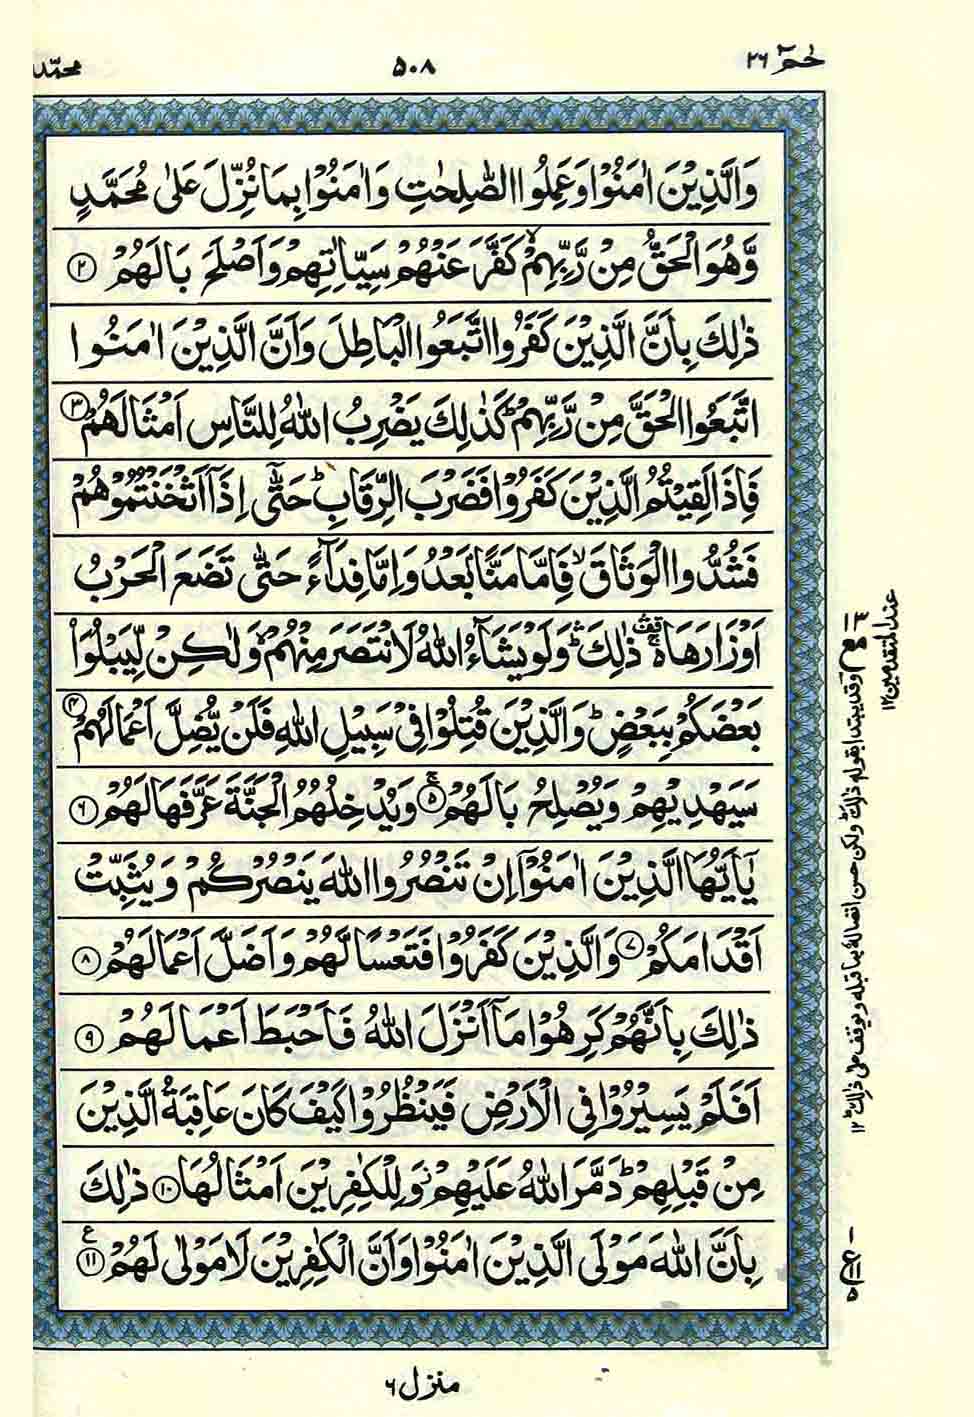 حٰمٓ ٢٦
٥٠٨
محمّد
وَالَّذِيْنَ اٰمَنُوْا وَعَمِلُوا الصّٰلِحٰتِ وَاٰمَنُوْا بِمَا نُزِّلَ عَلٰى مُحَمَّدٍ
وَّهُوَ الْحَقُّ مِنْ رَّبِّهِمْ ۙ كَفَّرَ عَنْهُمْ سَيِّاٰتِهِمْ وَاَصْلَحَ بَالَهُمْ ②
ذٰلِكَ بِاَنَّ الَّذِيْنَ كَفَرُوا اتَّبَعُوا الْبَاطِلَ وَاَنَّ الَّذِيْنَ اٰمَنُوا
اتَّبَعُوا الْحَقَّ مِنْ رَّبِّهِمْ ؕ كَذٰلِكَ يَضْرِبُ اللّٰهُ لِلنَّاسِ اَمْثَالَهُمْ ③
فَاِذَا لَقِيْتُمُ الَّذِيْنَ كَفَرُوْا فَضَرْبَ الرِّقَابِ ؕ حَتّٰٓى اِذَآ اَثْخَنْتُمُوْهُمْ
فَشُدُّوا الْوَثَاقَ ۙ فَاِمَّا مَنًّۢا بَعْدُ وَاِمَّا فِدَآءً حَتّٰى تَضَعَ الْحَرْبُ
اَوْزَارَهَا ۛ۬ۚ ذٰلِكَ ۛؕ وَلَوْ يَشَآءُ اللّٰهُ لَانْتَصَرَ مِنْهُمْ ۙ وَلٰكِنْ لِّيَبْلُوَا۟
بَعْضَكُمْ بِبَعْضٍ ؕ وَالَّذِيْنَ قُتِلُوْا فِيْ سَبِيْلِ اللّٰهِ فَلَنْ يُّضِلَّ اَعْمَالَهُمْ ④
سَيَهْدِيْهِمْ وَيُصْلِحُ بَالَهُمْ ⑤ۚ وَيُدْخِلُهُمُ الْجَنَّةَ عَرَّفَهَا لَهُمْ ⑥
يٰٓاَيُّهَا الَّذِيْنَ اٰمَنُوْٓا اِنْ تَنْصُرُوا اللّٰهَ يَنْصُرْكُمْ وَيُثَبِّتْ
اَقْدَامَكُمْ ⑦ وَالَّذِيْنَ كَفَرُوْا فَتَعْسًا لَّهُمْ وَاَضَلَّ اَعْمَالَهُمْ ⑧
ذٰلِكَ بِاَنَّهُمْ كَرِهُوْا مَآ اَنْزَلَ اللّٰهُ فَاَحْبَطَ اَعْمَالَهُمْ ⑨
اَفَلَمْ يَسِيْرُوْا فِى الْاَرْضِ فَيَنْظُرُوْا كَيْفَ كَانَ عَاقِبَةُ الَّذِيْنَ
مِنْ قَبْلِهِمْ ؕ دَمَّرَ اللّٰهُ عَلَيْهِمْ ؗ وَلِلْكٰفِرِيْنَ اَمْثَالُهَا ⑩ ذٰلِكَ
بِاَنَّ اللّٰهَ مَوْلَى الَّذِيْنَ اٰمَنُوْا وَاَنَّ الْكٰفِرِيْنَ لَا مَوْلٰى لَهُمْ ⑪ ع
وقد يبتدا بقوله ذلك ولكن حسن اتصاله بما قبله ويوقف على ذلك ١٢
عند المتقدمين ١٢
منزل ٦